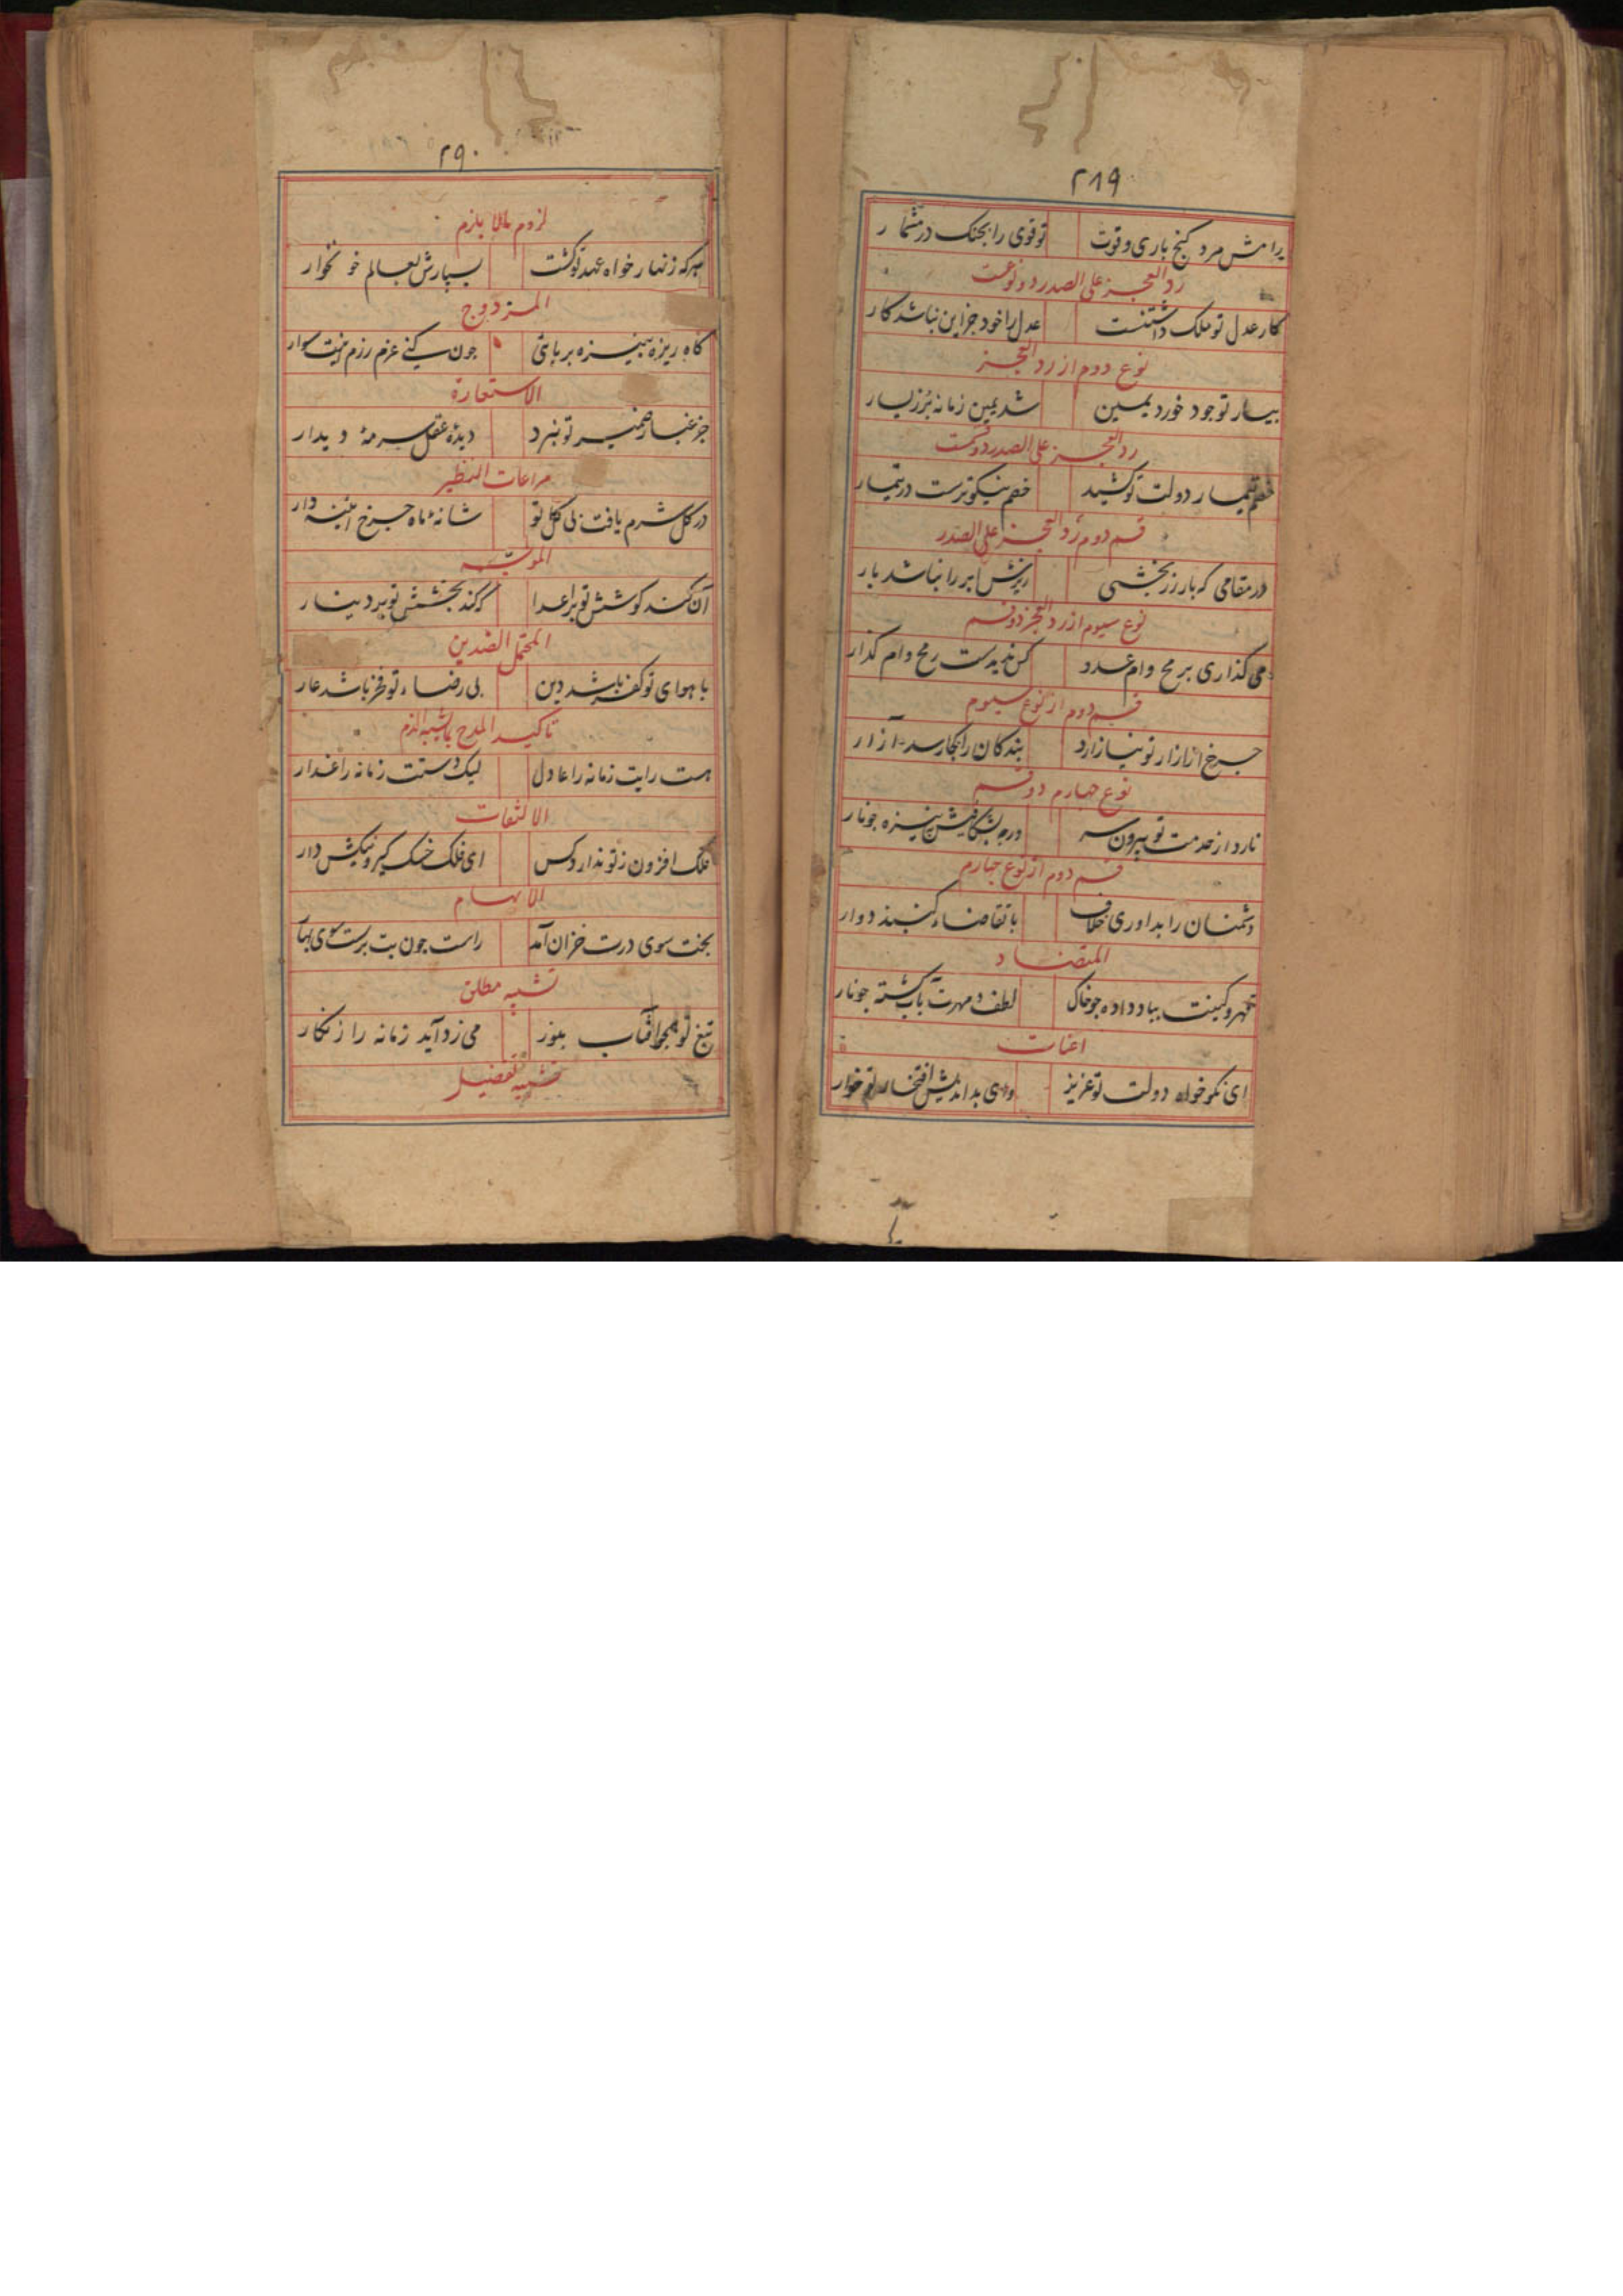 ۲۸۹
رامش مرد گنج باری وقوت توقوی را بجنک درمشمار
رد العجز علی الصدر دو نوعست
کار عدل تو ملک داشتنست عدل را خود جزاین نباشد کار
نوع دوم از رد العجز
بیسار تو جود خورد یمین شد یمین زمانه پر زیسار
رد العجز علی الصدر دو قسمت
خصم تیمار دولت تو کشید خصم نیکوترست در تیمار
قسم دوم رد العجز علی الصدر
در مقامی که بار زر بخشی ریزش ابر را نباشد بار
نوع سیوم از رد العجز دو قسم
می گذاری برمح وام عدو کس ندیدست رمح وام گذار
قسم دوم از نوع سیوم
جرخ ازآزار تو نیازارد بندکان را بجا رسد آزار
نوع جهارم دو قسم
نارد از خدمت تو بیرون سر ورجه بشکافیش بنیزه جونار
قسم دوم از نوع جهارم
دشمنان را بداوری خلاف با تقاضاء کنبد دوار
المتضاد
قهر و کینت بباد داده جوخاک لطف و مهرت بآب کشته جونار
اعنات
ای نکوخواه دولت تو عزیز وای بداندیش افتخار تو خوار
۲۹۰
لزوم مالا یلزم
هرکه زنهار خواه عهد تو کشت بسپارش بعالم خونخوار
المزدوج
کاه ریزه بنیزه بربائی جون کنی عزم رزم اینت سوار
الاستعارة
جز غبار ضمیر تو نبرد دیده عقل سرمهٔ دیدار
مراعات النظیر
در کل شرم یافت بی کل تو شانهٔ ماه جرخ آینه دار
الموجه
آن کند کوشش تو بر اعدا که کند بخشش تو بر دینار
المحتمل الضدین
با هوای تو کفر باشد دین بی رضاء تو فخر باشد عار
تاکید المدح بما یشبه الذم
هست رایت زمانه را عادل لیک دستت زمانه را غدار
الالتفات
ملک افزون ز تو ندارد کس ای فلک خسک کیر و نیکش دار
الایهام
بخت سوی درت خزان آمد راست جون بت برست سوی بهار
تشبیه مطلق
تیغ تو همجو آفتاب بنور می زدآید زمانه را زنکار
تشبیه تفضیل